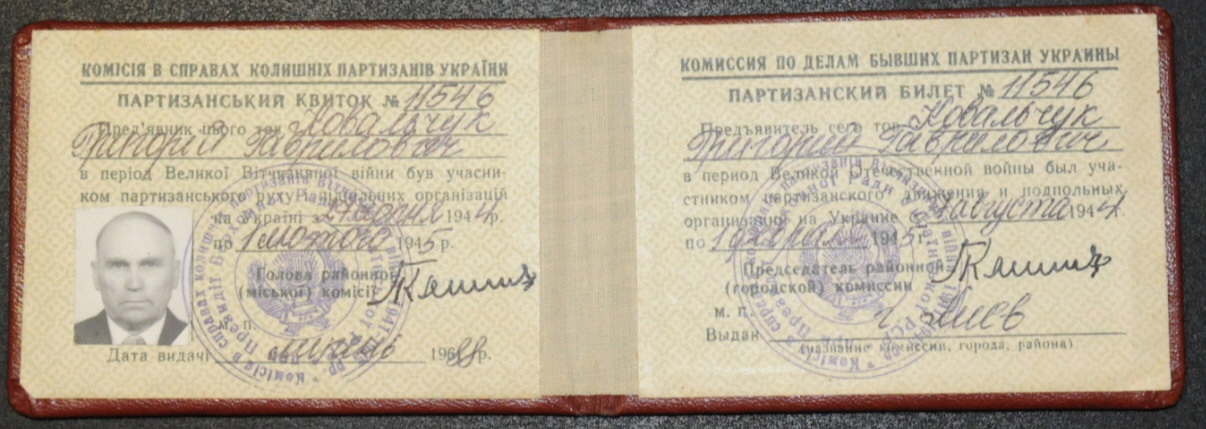 КОМІСІЯ В СПРАВАХ КОЛИШНІХ ПАРТИЗАНІВ УКРАЇНИ
ПАРТИЗАНСЬКИЙ КВИТОК № 11546
Пред'явник цього тов. Ковальчук
Григорий Гаврилович
в період Великої Вітчизняної війни був учасни-
ком партизанського руху і підпільних організацій
на Україні з 1944 р.
по 1 лютого 1945 р.
Голова районної
(міської) комісії
м. п.
Дата видачі 1968 р.
КОМИССИЯ ПО ДЕЛАМ БЫВШИХ ПАРТИЗАН УКРАИНЫ
ПАРТИЗАНСКИЙ БИЛЕТ № 11546
Предъявитель сего тов. Ковальчук
Григорий Гаврилович
в период Великой Отечественной войны был уча-
стником партизанского движения и подпольных
организаций на Украине августа 1944
по 1 февраля 1945 г.
Председатель районной
(городской) комиссии
м. п. г. Киев
Выдан
(название комиссии, города, района)